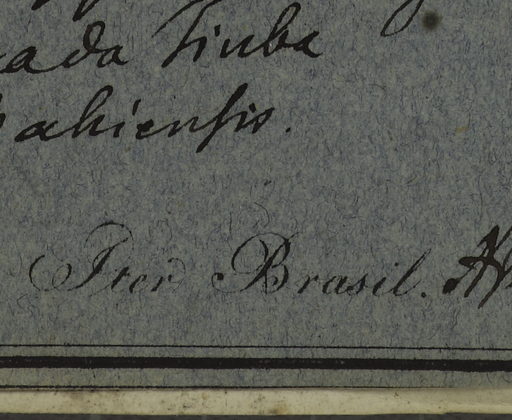 ada Tiuba
ahiensis.
Iter Brasil.